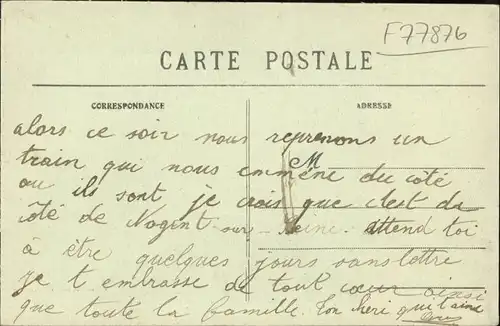 F77876
CARTE POSTALE
CORRESPONDANCE
ADRESSE
alors ce soir nous reprenons un
M
train qui nous emmène du côté
ou ils sont, je crois que c'est du
côté de Nogent-sur-Seine. attend toi
à être quelques jours sans lettre
je t embrasse de tout cœur ainsi
que toute la famille. Ton chéri qui t'aime